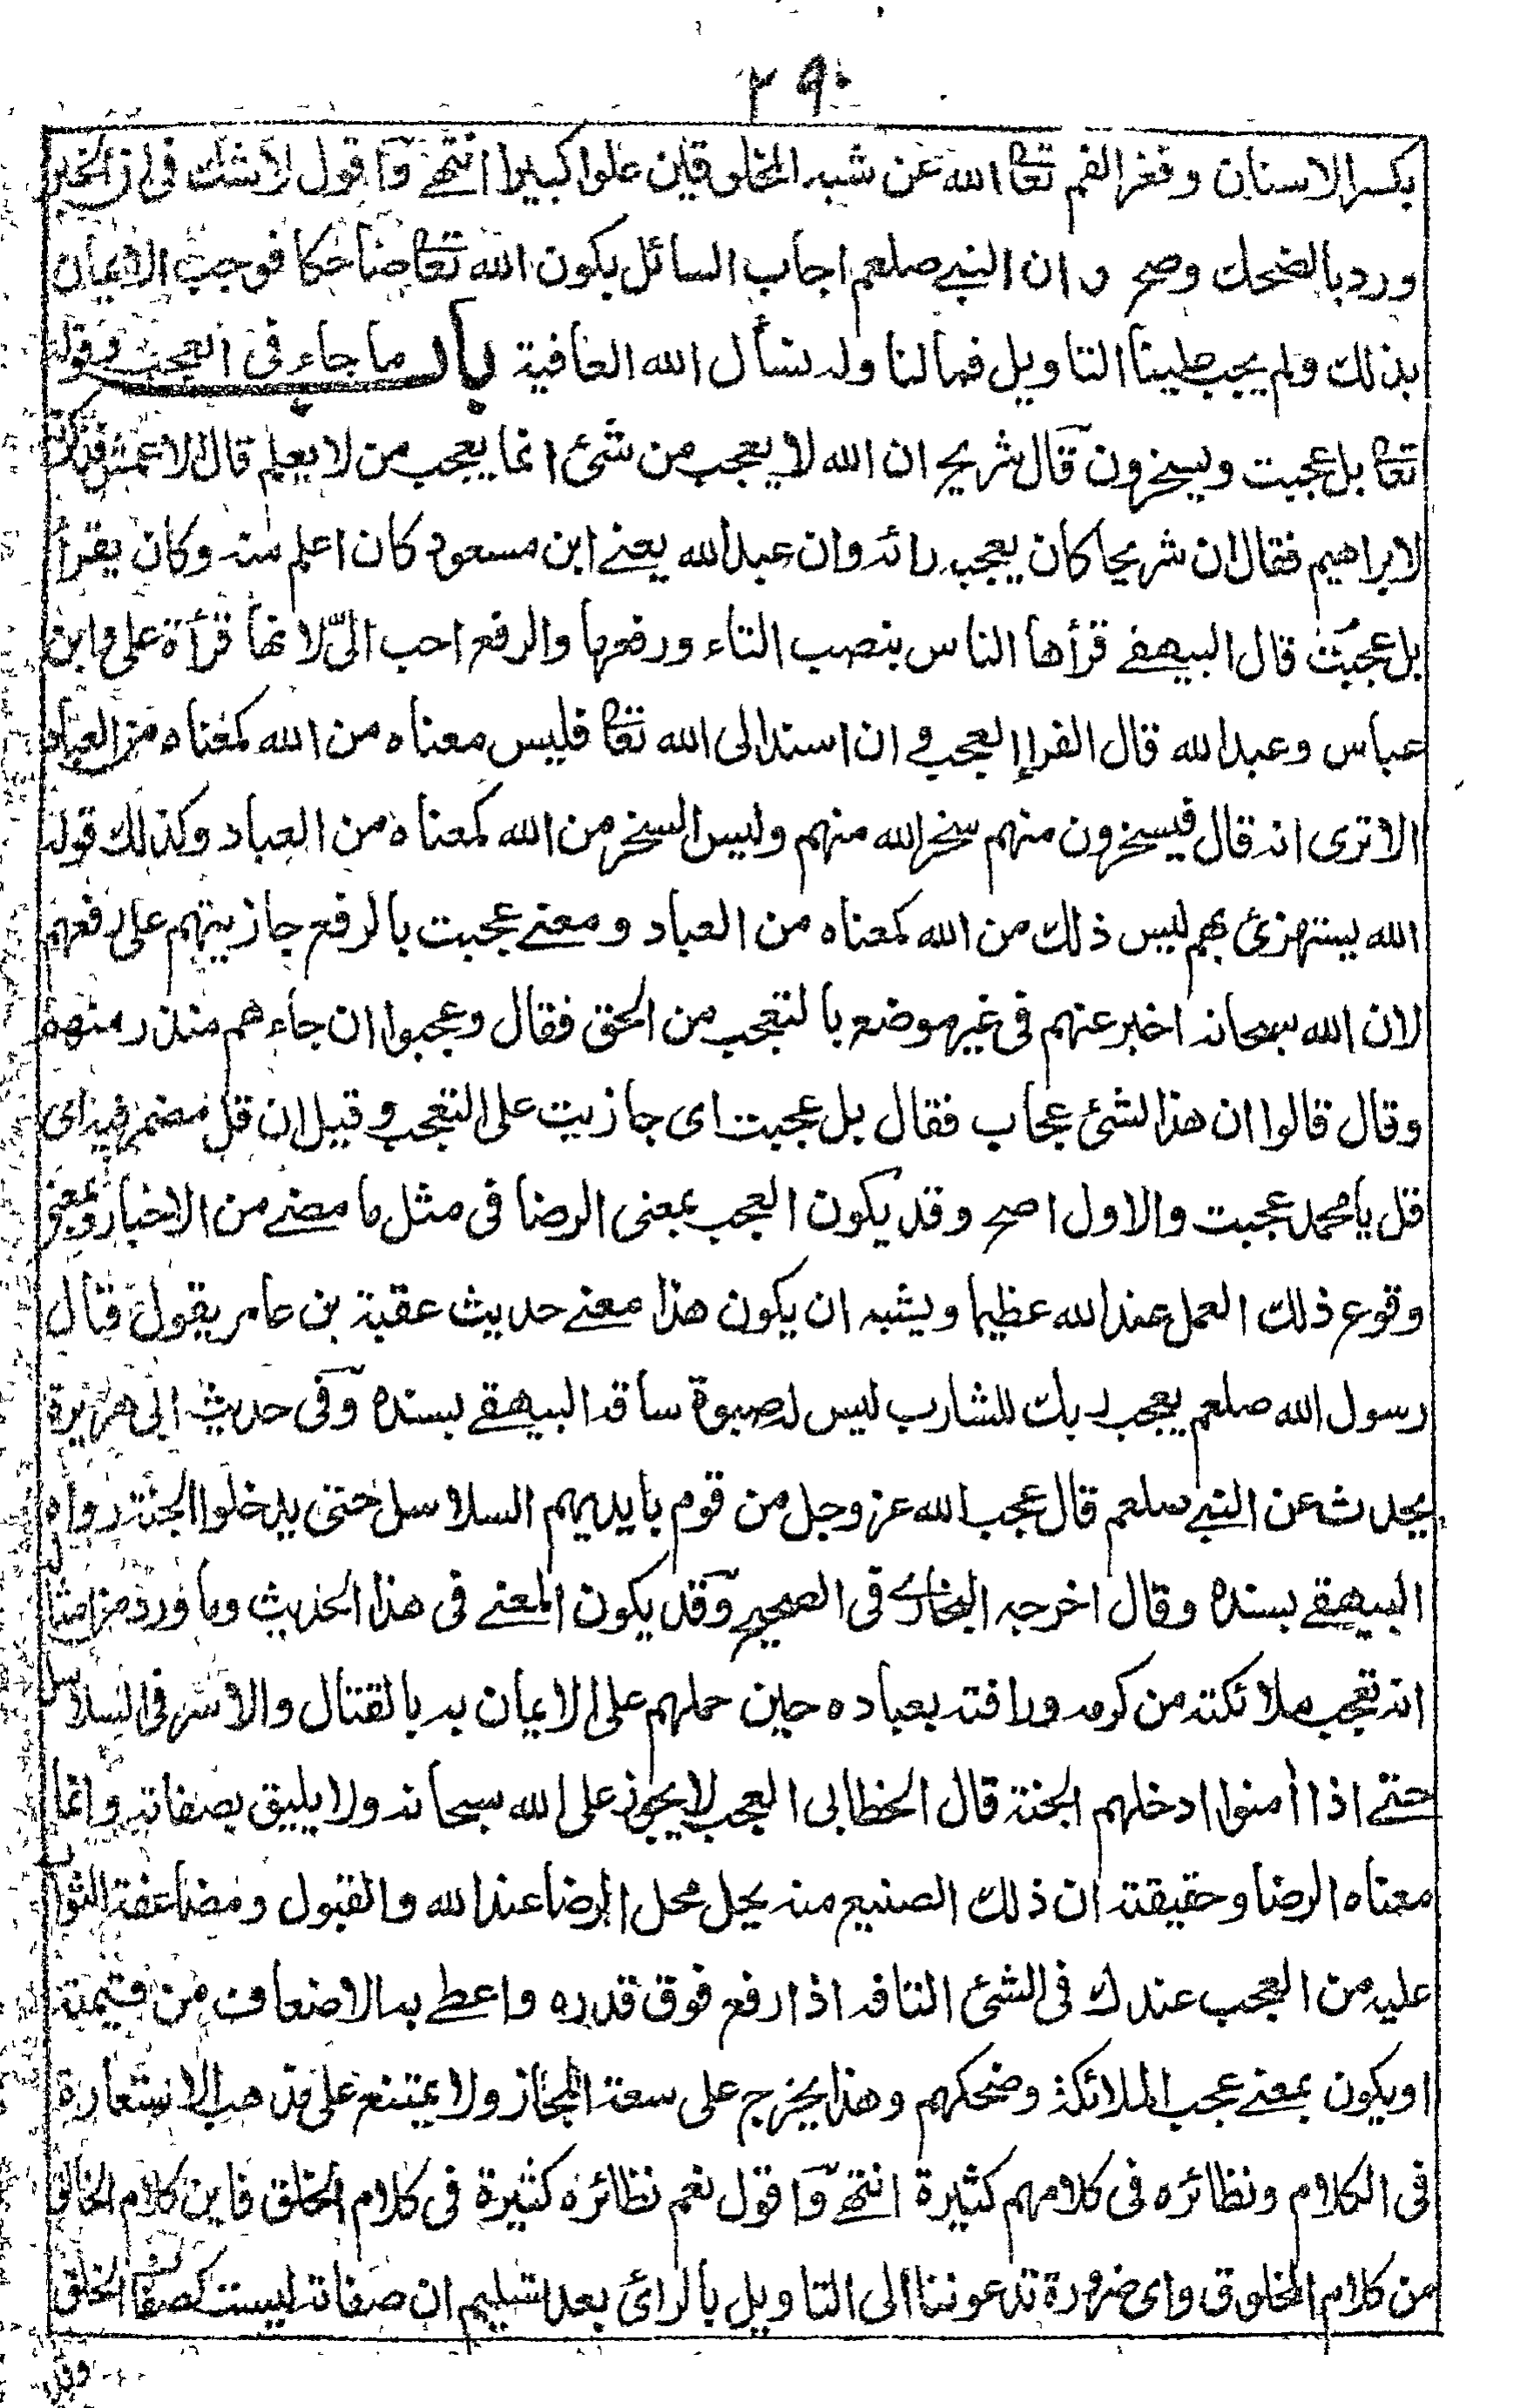 ٢٩٠
بكسر الاسنان وفغر الفم تعا الله عن شبه المخلوقين علوا كبيرا انتهے واقول لا شك فی ان الخبر
ورد بالضحك وصح وان النبے صلعم اجاب السائل بكون الله تعا ضاحكا فوجب الايمان
بذلك ولم يجب علينا التاويل فمالنا وله نسأل الله العافية باب ما جاء فی العجب وقوله
تعا بل عجبت ويسخرون قال شريح ان الله لا يعجب من شئ انما يعجب من لا يعلم قال الاعمش فذكرت
لابراهيم فقال ان شريحا كان يعجبه رائه وان عبد الله يعنے ابن مسعود كان اعلم منه وكان يقرأ
بل عجبت قال البيهقے قرأها الناس بنصب التاء ورفعها والرفع احب الیّ لانها قرأة علی وابن
عباس وعبد الله قال الفراء العجب و ان اسند الى الله تعا فليس معناه من الله كمعناه من العباد
الا ترى انه قال فيسخرون منهم سخر الله منهم وليس السخر من الله كمعناه من العباد وكذلك قوله
الله يستهزئ بهم ليس ذلك من الله كمعناه من العباد ومعنے عجبت بالرفع جازيتهم على رفعهم
لان الله سبحانه اخبر عنهم فی غير موضع بالتعجب من الحق فقال وعجبوا ان جاءهم منذر منهم
وقال قالوا ان هذا لشئ عجاب فقال بل عجبت ای جازيت على التعجب وقيل ان قل مضمر فيه ای
قل يا محمد عجبت والاول اصح وقد يكون العجب بمعنى الرضا فی مثل ما مضے من الاخبار وبمعنے
وقوع ذلك العمل عند الله عظيما ويشبه ان يكون هذا معنے حديث عقبة بن عامر يقول قال
رسول الله صلعم يعجب ربك للشاب ليس له صبوة ساقه البيهقے بسنده وفی حديث ابی هريرة
يحدث عن النبے صلعم قال عجب الله عز وجل من قوم بايديهم السلاسل حتى يدخلوا الجنة رواه
البيهقے بسنده وقال اخرجه البخاری فی الصحيح وقد يكون المعنے فی هذا الحديث وما ورد من امثاله
انه تعجب ملائكته من كرمه ورافته بعباده حين حملهم على الايمان به بالقتال والاسر فی السلاسل
حتے اذا أمنوا ادخلهم الجنة قال الخطابی العجب لا يجوز على الله سبحانه ولا يليق بصفاته وانما
معناه الرضا وحقيقته ان ذلك الصنيع منه يحل محل الرضا عند الله والقبول ومضاعفة الثواب
عليه من العجب عندك فی الشئ التافه اذا رفع فوق قدره واعطے به الاضعاف من قيمته
او يكون بمعنے عجب الملائكة وضحكهم وهذا يخرج على سعة المجاز ولا يمتنع على مذهب الاستعارة
فی الكلام ونظائره فی كلامهم كثيرة انتهے واقول نعم نظائره كثيرة فی كلام الخلق فاين كلام الخالق
من كلام المخلوق وای ضرورة تدعوننا الى التاويل بالرائ بعد تسليم ان صفاته ليست كصفات الخلق